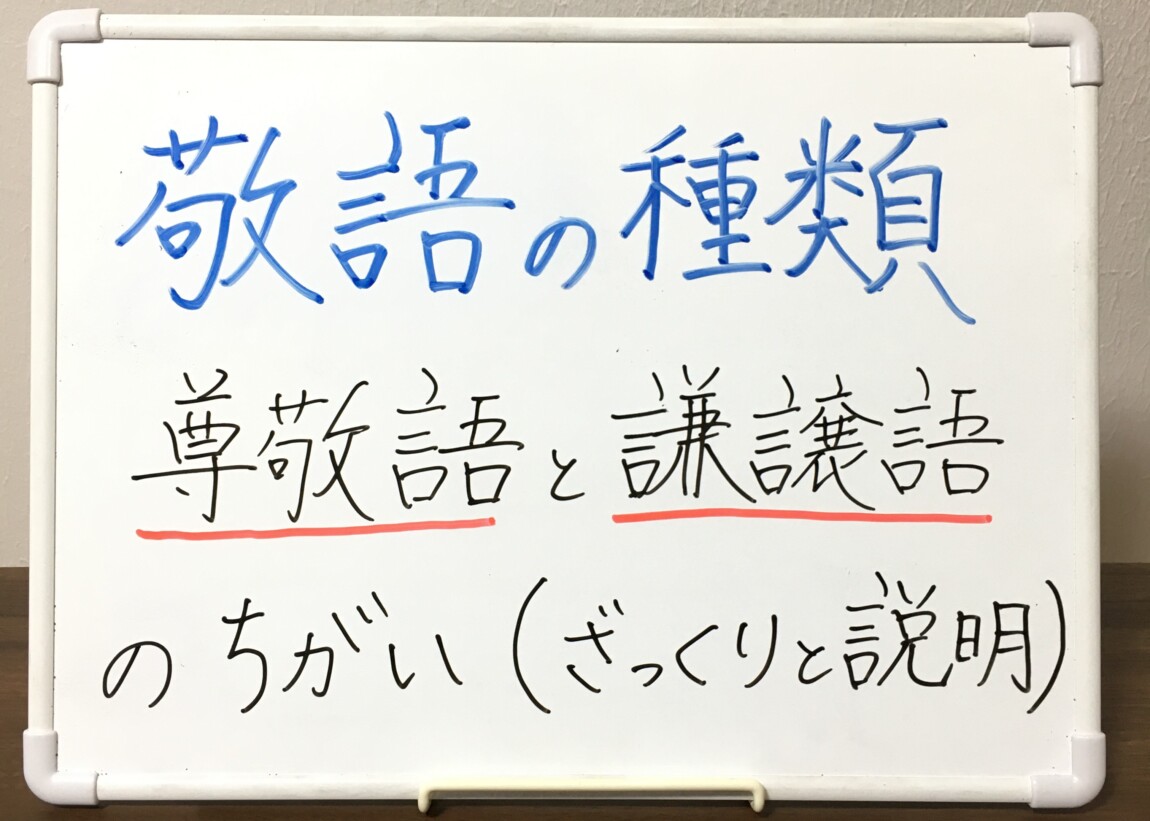 敬語の種類
尊敬語と謙譲語
のちがい(ざっくりと説明)